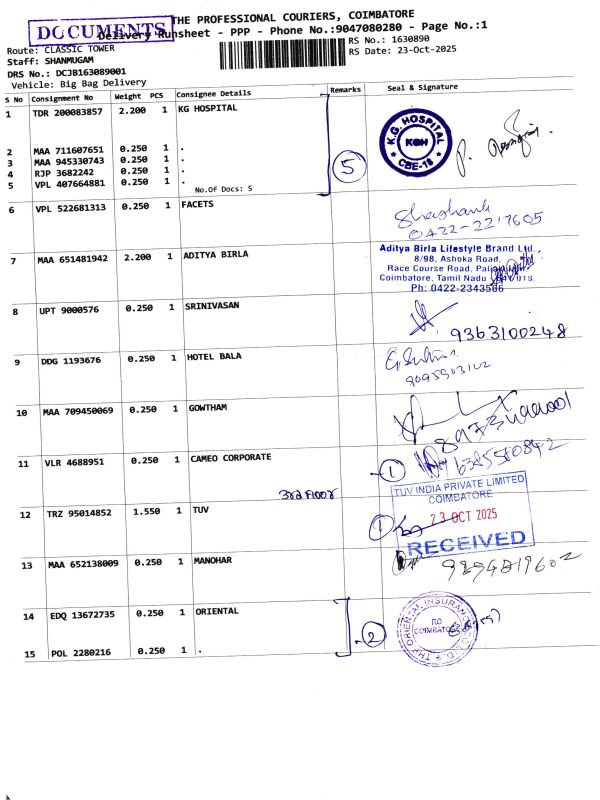 DOCUMENTS
THE PROFESSIONAL COURIERS, COIMBATORE
Delivery Runsheet - PPP - Phone No.:9047080280 - Page No.:1
Route: CLASSIC TOWER
RS No.: 1630890
Staff: SHANMUGAM
RS Date: 23-Oct-2025
DRS No.: DCJB163089001
Vehicle: Big Bag Delivery
S No Consignment No Weight PCS Consignee Details Remarks Seal & Signature
1 TDR 200083857 2.200 1 KG HOSPITAL
2 MAA 711607651 0.250 1 .
3 MAA 945330743 0.250 1 .
4 RJP 3682242 0.250 1 .
5 VPL 407664881 0.250 1 .
No.Of Docs: 5
5
K.G. HOSPITAL
KGH
CBE-18
6 VPL 522681313 0.250 1 FACETS
Shashank
0422-2217605
7 MAA 651481942 2.200 1 ADITYA BIRLA
Aditya Birla Lifestyle Brand Ltd.,
8/98, Ashoka Road,
Race Course Road,
Coimbatore, Tamil Nadu
Ph: 0422-2343566
8 UPT 9000576 0.250 1 SRINIVASAN
9363100248
9 DDG 1193676 0.250 1 HOTEL BALA
10 MAA 709450069 0.250 1 GOWTHAM
11 VLR 4688951 0.250 1 CAMEO CORPORATE
1
6385580842
3rd Floor
12 TRZ 95014852 1.550 1 TUV
1
TUV INDIA PRIVATE LIMITED
COIMBATORE
23 OCT 2025
RECEIVED
13 MAA 652138009 0.250 1 MANOHAR
9894819602
14 EDQ 13672735 0.250 1 ORIENTAL
15 POL 2280216 0.250 1 .
2
THE ORIENTAL INSURANCE
RO
COIMBATORE